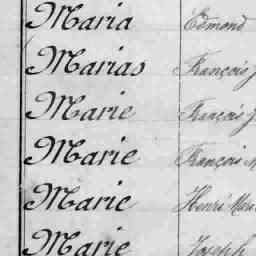 Maria Edmond
Marias François J
Marie François J
Marie François M
Marie Henri
Marie Joseph